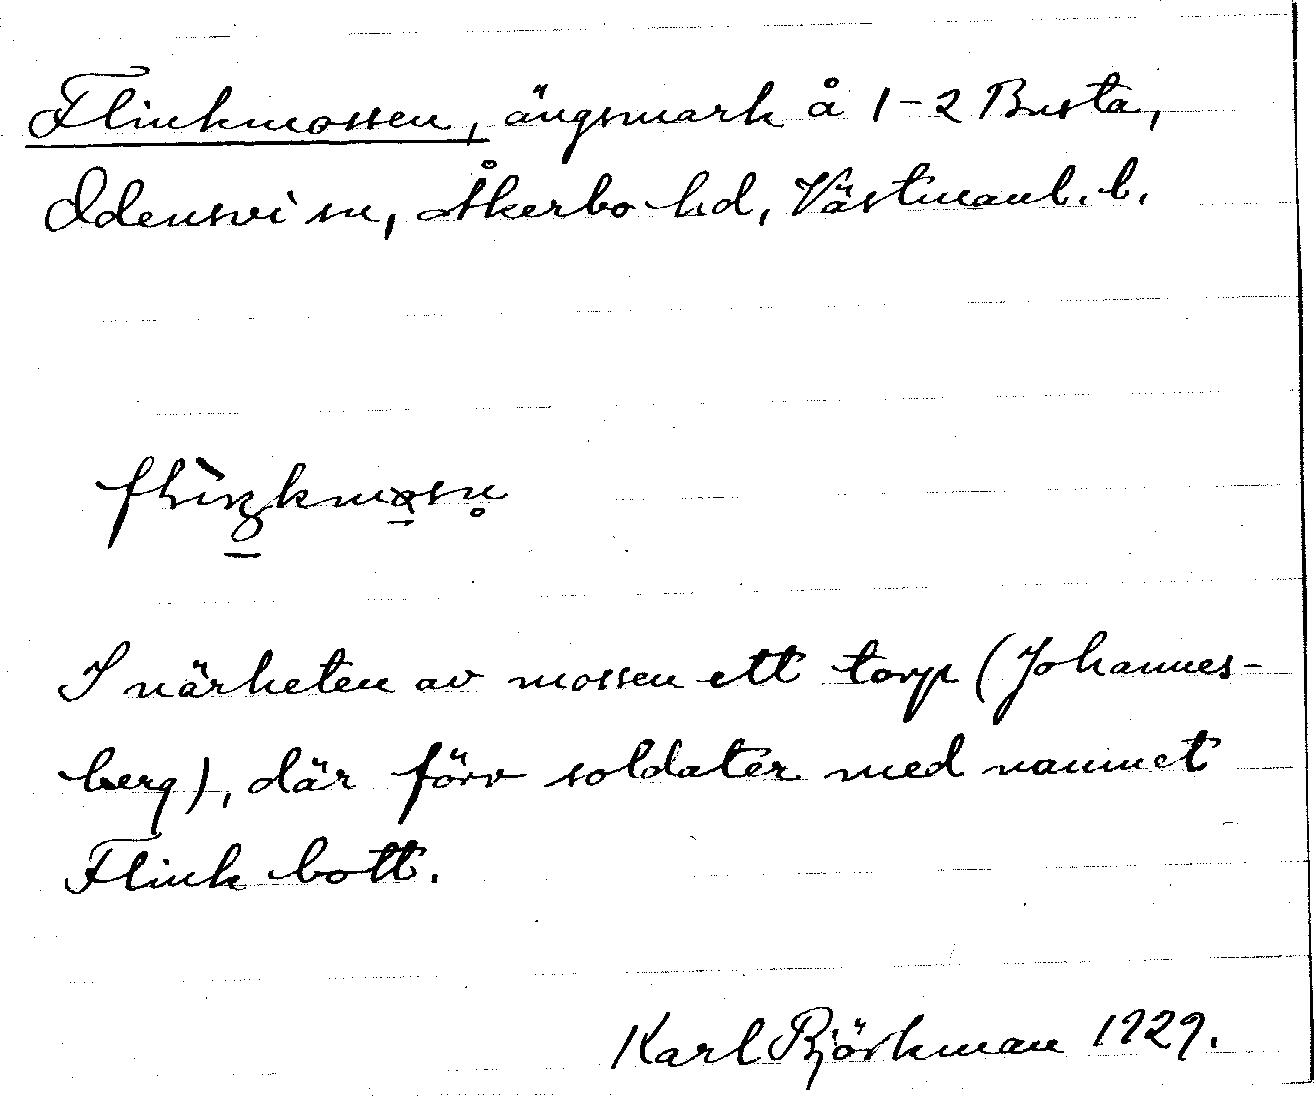 Flinkmossen, ängsmark å 1-2 Busta,
Odensvi sn, Åkerbo hd, Västmanl. l.
I närheten av mossen ett torp (Johannes-
berg), där förr soldater med namnet
Flink bott.
Karl Björkman 1929.